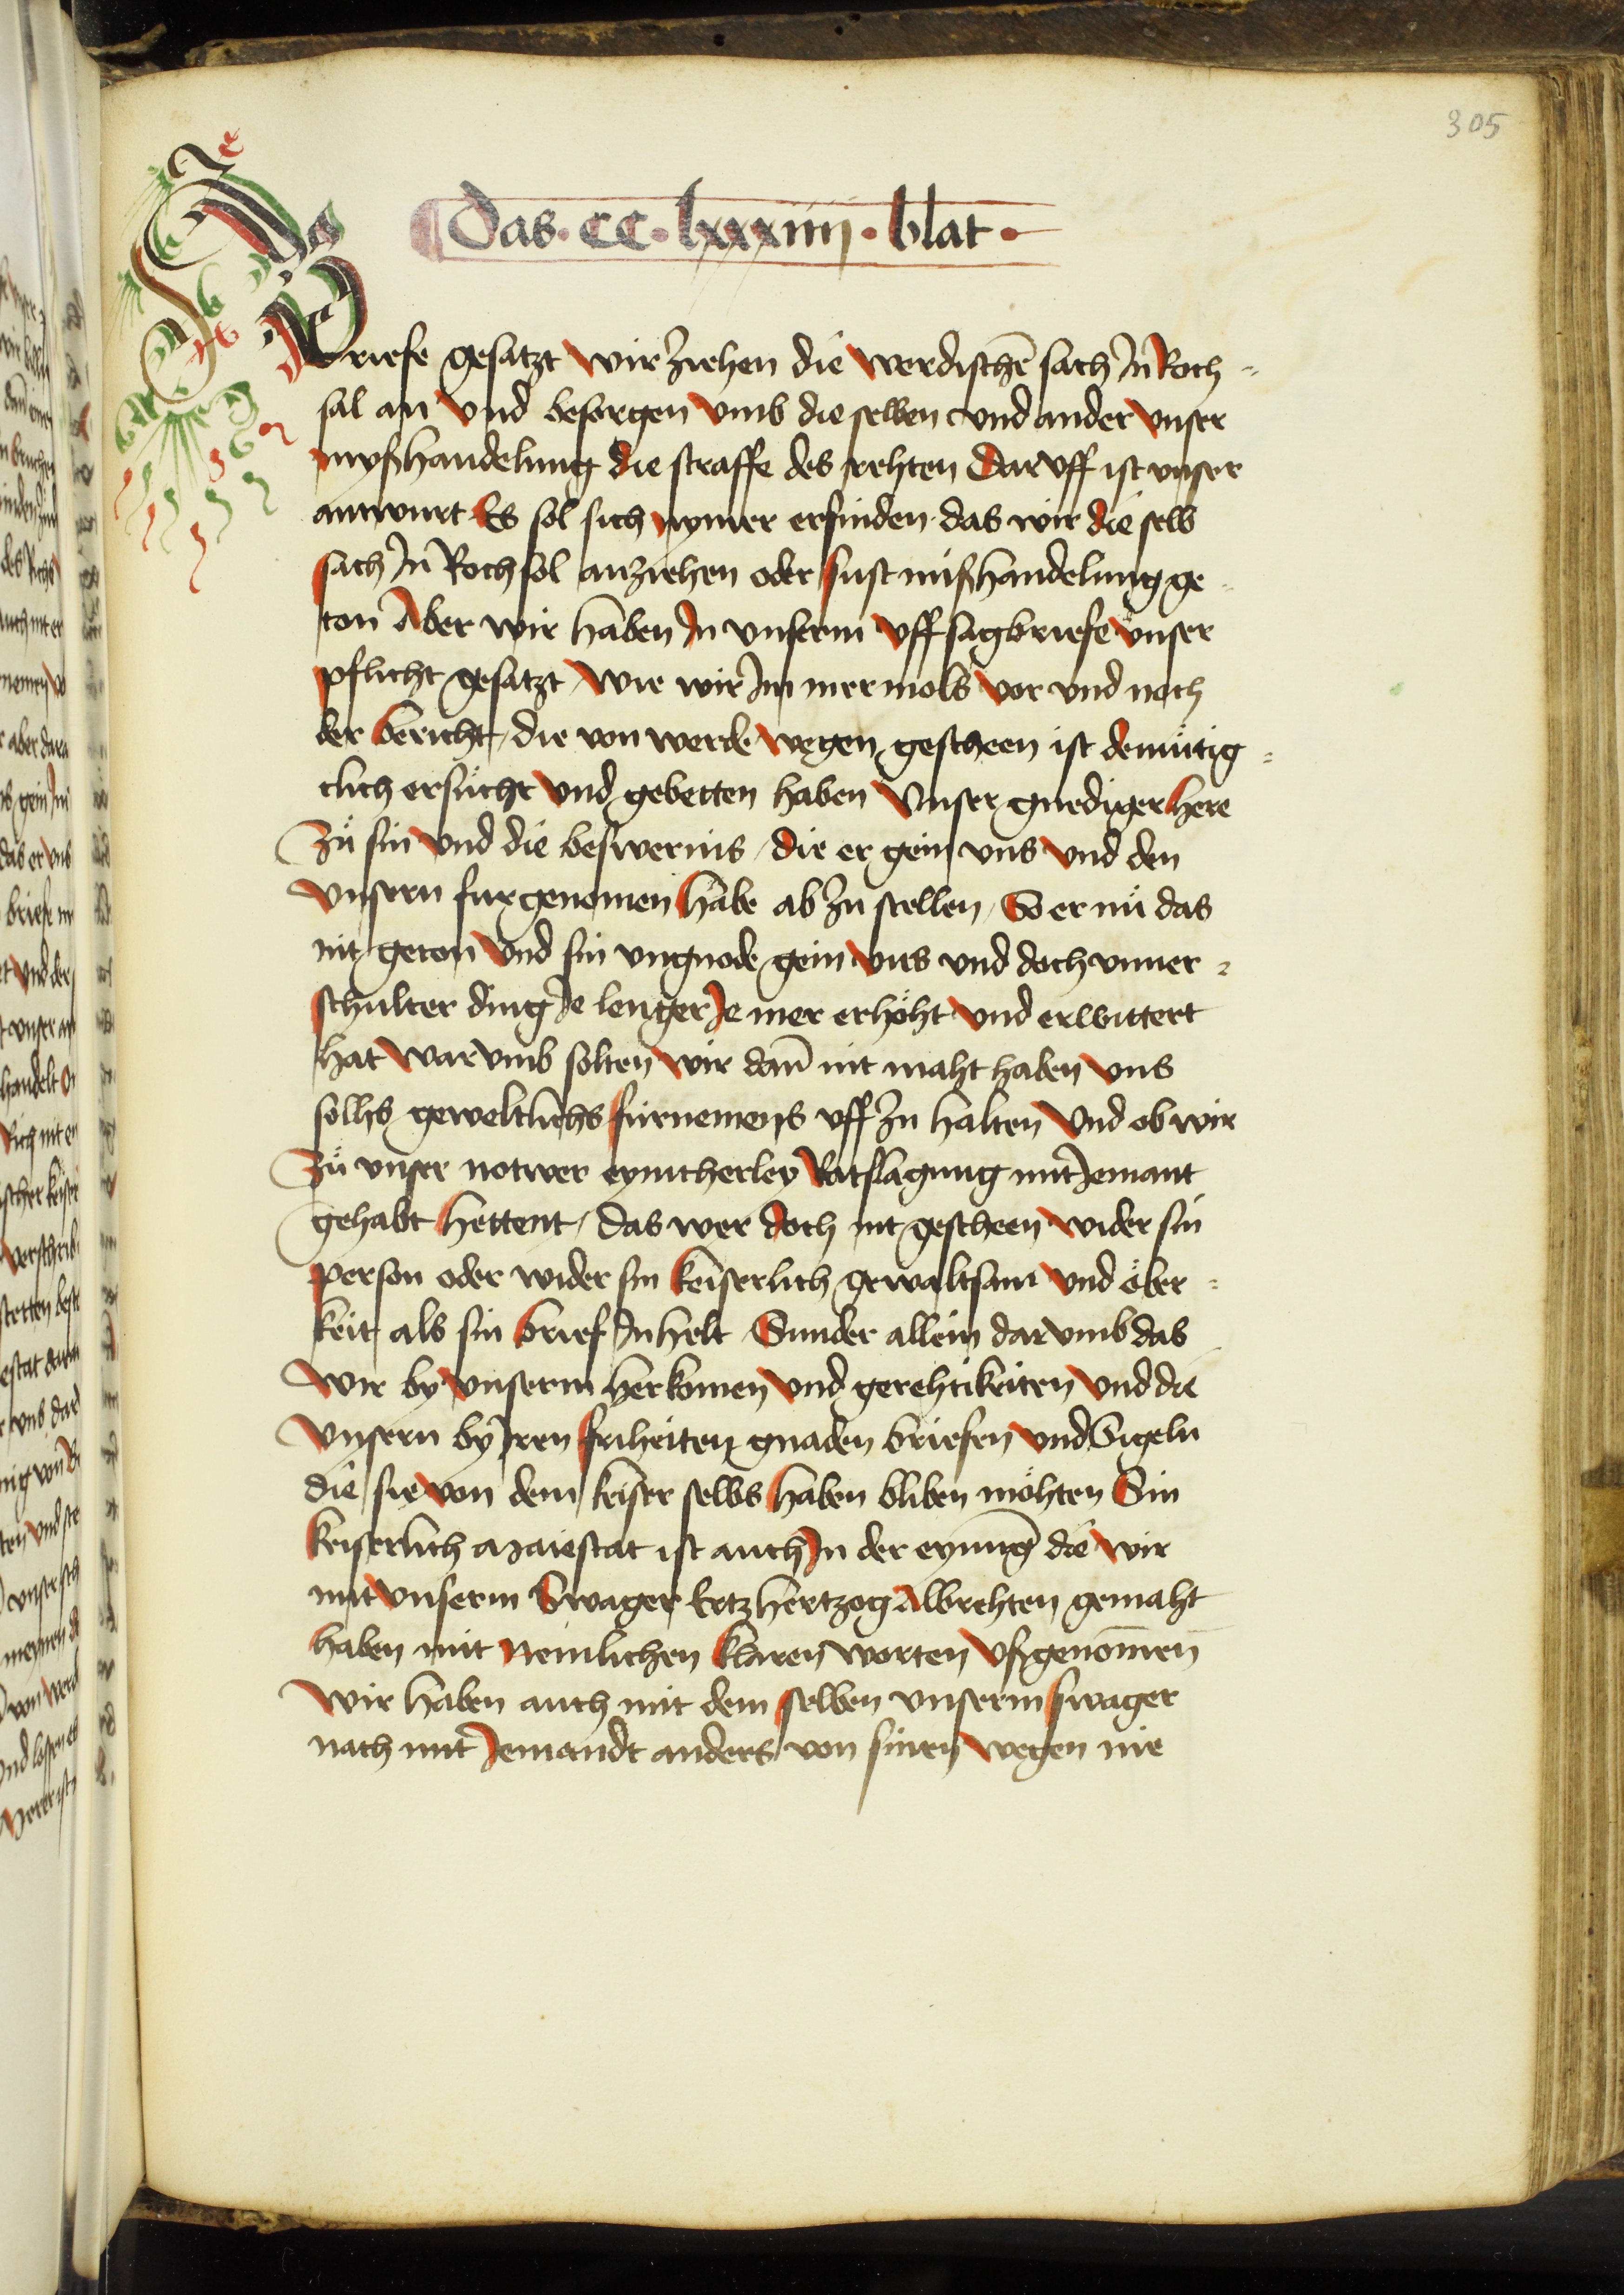 305
Das · CC · lxxxiiij · blat ·
Briefe gesatzt wir ziehen die werdischē sach Jn Roch-
sal an vnd besorgen vmb die selben vnd ander vnser
myßhandelung die straffe des rehten Dar vff ist vnser
antwurt Es sol sich nymer erfinden das wir die selb
sach Jn Rochsol anziehen oder sust mißhandelung ge-
ton Aber wir haben Jn vnserm vffsagbriefe vnser
pflicht gesatzt wie wir Jm mermols vor vnd noch
der bericht die von werde wegen gescheen ist demütig-
clich ersücht vnd gebetten haben Vnser gnediger here
Zů sin vnd die beswernis die er gein vns vnd den
vnsern furgenomen habe ab zu stellen So er nů das
nit geton vnd sin vngnode gein vns vnd doch vnuer-
schulter ding Je lenger Je mer erhöht vnd erwittert
hat war vmb solten wir dan̄ nit maht haben vns
solhs geweltlichs fürnemens vff zu halten Vnd ob wir
Zů vnser notwer eynicherley Ratslagung mit Jemant
gehabt hettent das wer doch nit gescheen wider sin
person oder wider sin keiserlich gewaltsam vnd öber-
keit als sin brief Jnhelt Sunder allein dar vmb das
wir by vnserm herkomen vnd gerehtikeiten vnd die
vnsern by Jren friheiten gnaden briefen vnd Sigeln
die sie von dem keiser selbs haben bliben möhten Sin
keiserlich maiestat ist auch Jn der eynung die wir
mit vnserm Swager Ertzhertzog Albrehten gemaht
haben mit nemlichen kloren worten vßgenōmen
wir haben auch mit dem selben vnserm swager
nach mit Jemandt anders von sinen wegen nie